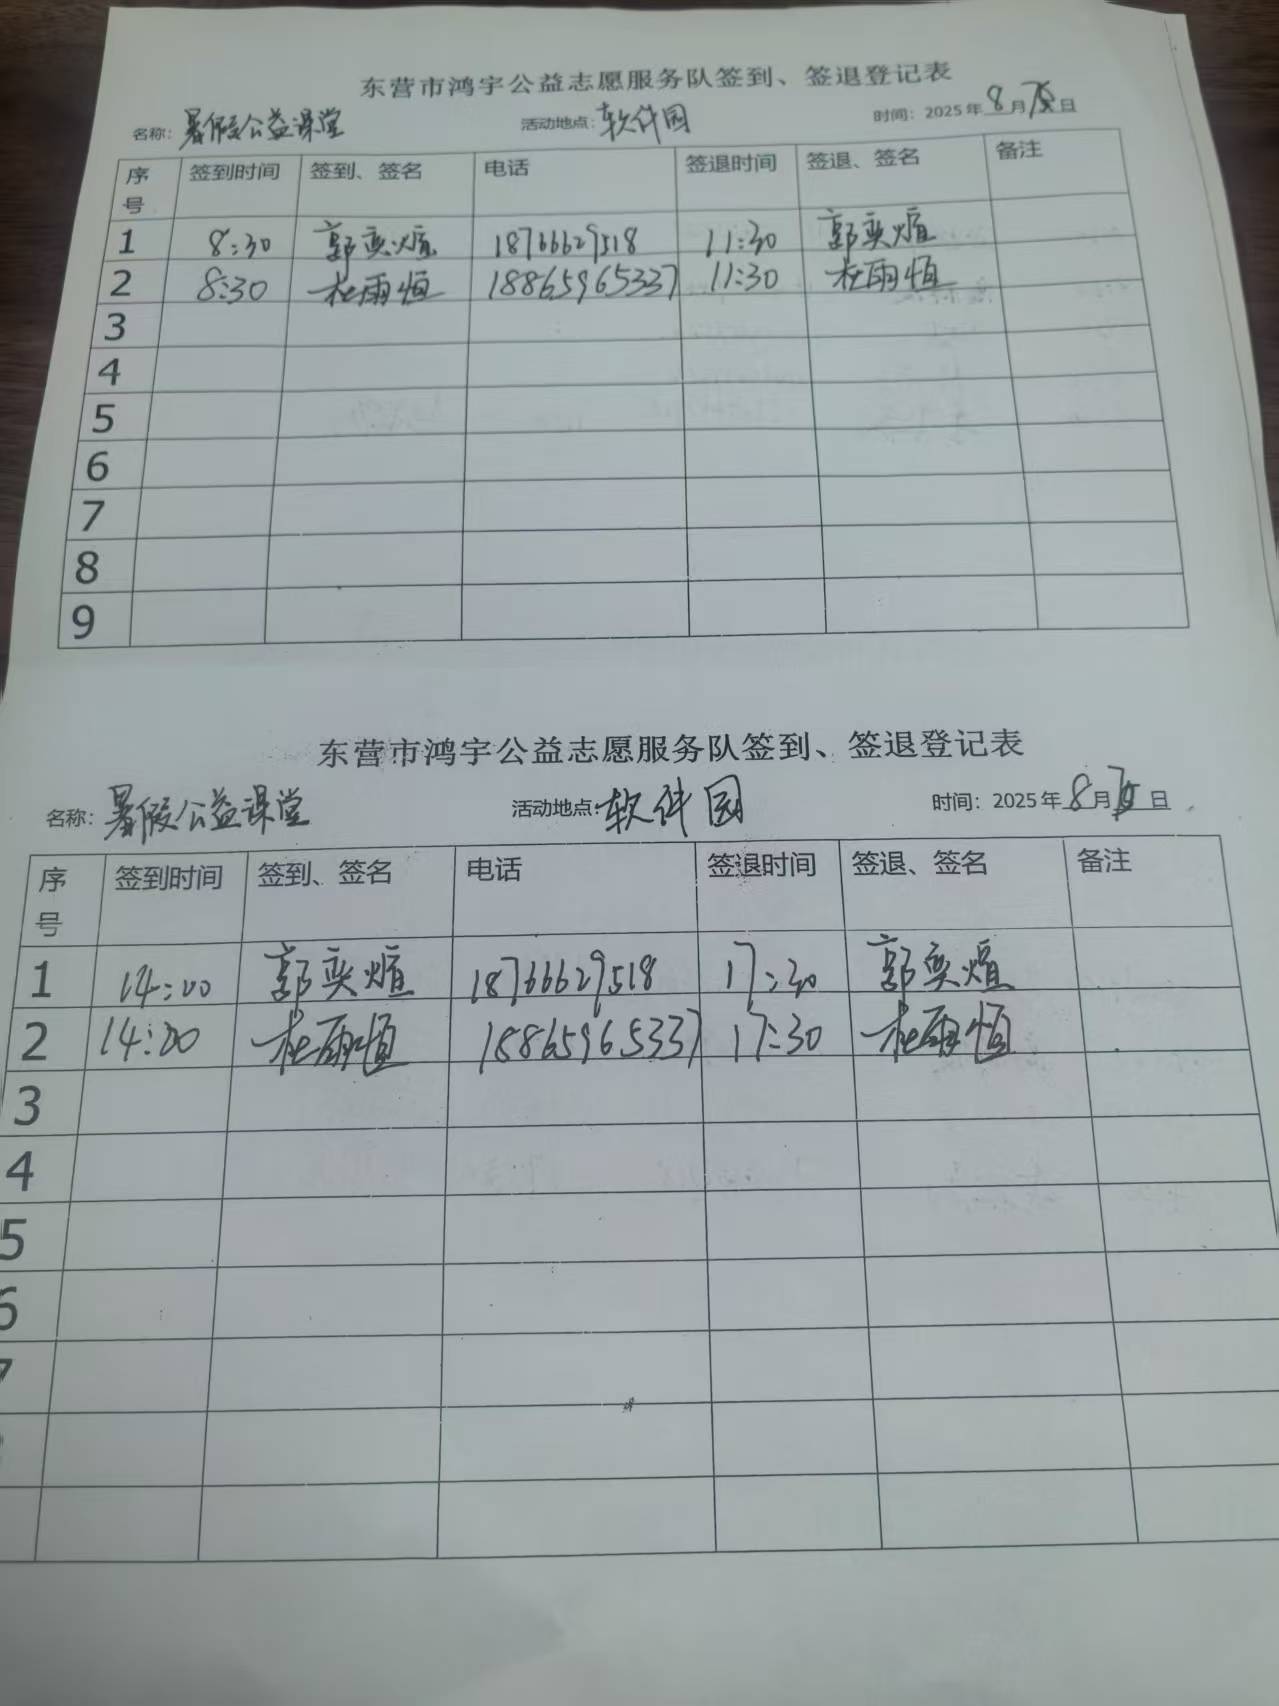 东营市鸿宇公益志愿服务队签到、签退登记表
名称：暑假公益课堂 活动地点：软件园 时间：2025年8月 日
序号 签到时间 签到、签名 电话 签退时间 签退、签名 备注
1 8:30 郭奕煊 18766629518 11:30 郭奕煊
2 8:30 杜雨恒 18865965337 11:30 杜雨恒
3
4
5
6
7
8
9
东营市鸿宇公益志愿服务队签到、签退登记表
名称：暑假公益课堂 活动地点：软件园 时间：2025年8月 日
序号 签到时间 签到、签名 电话 签退时间 签退、签名 备注
1 14:00 郭奕煊 18766629518 17:30 郭奕煊
2 14:00 杜雨恒 18865965337 17:30 杜雨恒
3
4
5
6
7